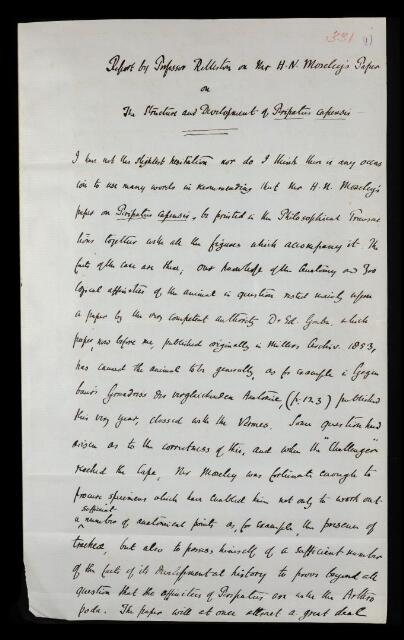 331 (1)
Report by Professor Rolleston on Mr H. N. Moseley's Paper
on
The Structure and Development of Peripatus capensis
I have not the slightest hesitation nor do I think there is any occas
ion to use many words in recommending that Mr H. N. Moseley's
paper on Peripatus capensis, be printed in the Philosophical Transac
tions together with all the figures which accompany it. The
facts of the case are these; our knowledge of the Anatomy and Zoo
logical affinities of the animal in question rested mainly upon
a paper by the very competent authority Dr Ed. Grube, which
paper, now before me, published originally in Müllers Archiv. 1853,
has caused the animal to be generally, as for example in Gegen
baur's Grundriss der vergleichenden Anatomie, (p. 123) published
this very year, classed with the Vermes. Some question had
arisen as to the correctness of this, and when the "Challenger"
reached the Cape, Mr Moseley was fortunate enough to
procure specimens which have enabled him not only to work out
sufficient
a number of anatomical points as, for example, the presence of
tracheæ, but also to possess himself of a sufficient number
of the facts of its developmental history to prove beyond all
question that the affinities of Peripatus are with the Arthro
poda. The paper will at once attract a great deal